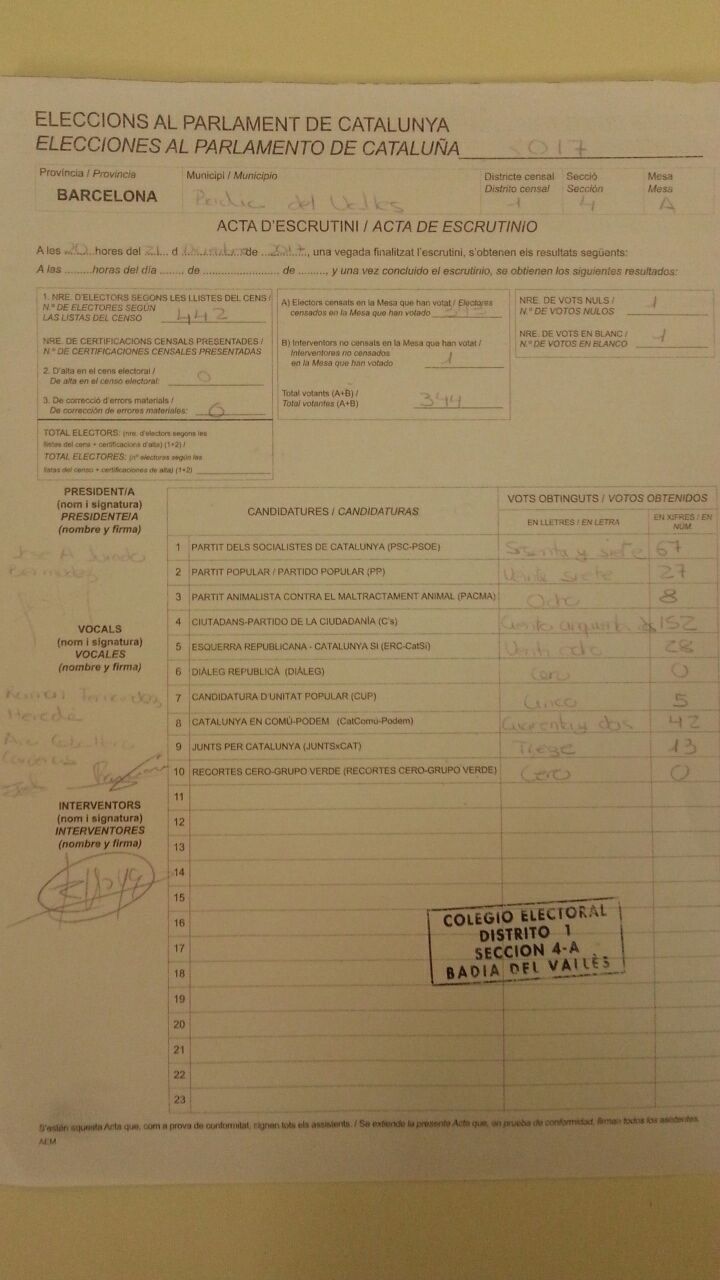 ELECCIONS AL PARLAMENT DE CATALUNYA
ELECCIONES AL PARLAMENTO DE CATALUÑA 2017
Provincia / Provincia
BARCELONA
Municipi / Municipio
Badia del Valles
Districte censal
Distrito censal
1
Secció
Sección
4
Mesa
Mesa
A
ACTA D'ESCRUTINI / ACTA DE ESCRUTINIO
A les 20 hores del 21 d Diciembre de 2017, una vegada finalitzat l'escrutini, s'obtenen els resultats següents:
A las .........horas del día ....... de ........................ de ........, y una vez concluido el escrutinio, se obtienen los siguientes resultados:
1. NRE. D'ELECTORS SEGONS LES LLISTES DEL CENS /
N.º DE ELECTORES SEGÚN
LAS LISTAS DEL CENSO 442
NRE. DE CERTIFICACIONS CENSALS PRESENTADES /
N.º DE CERTIFICACIONES CENSALES PRESENTADAS
2. D'alta en el cens electoral /
De alta en el censo electoral: 0
3. De correcció d'errors materials /
De corrección de errores materiales: 0
TOTAL ELECTORS: (nre. d'electors segons les
llistes del cens + certificacions d'alta) (1+2) /
TOTAL ELECTORES: (nº electores según las
listas del censo + certificaciones de alta) (1+2)
A) Electors censats en la Mesa que han votat / Electores
censados en la Mesa que han votado 343
B) Interventors no censats en la Mesa que han votat /
Interventores no censados
en la Mesa que han votado 1
Total votants (A+B) /
Total votantes (A+B) 344
NRE. DE VOTS NULS /
N.º DE VOTOS NULOS 1
NRE. DE VOTS EN BLANC /
N.º DE VOTOS EN BLANCO 1
PRESIDENT/A
(nom i signatura)
PRESIDENTE/A
(nombre y firma)
Jose A
Bermudez
VOCALS
(nom i signatura)
VOCALES
(nombre y firma)
Fernandez
Heredia
Caballero
INTERVENTORS
(nom i signatura)
INTERVENTORES
(nombre y firma)
CANDIDATURES / CANDIDATURAS
VOTS OBTINGUTS / VOTOS OBTENIDOS
EN LLETRES / EN LETRA
EN XIFRES / EN NÚM.
1 PARTIT DELS SOCIALISTES DE CATALUNYA (PSC-PSOE) Sesenta y siete 67
2 PARTIT POPULAR / PARTIDO POPULAR (PP) Veinte siete 27
3 PARTIT ANIMALISTA CONTRA EL MALTRACTAMENT ANIMAL (PACMA) Ocho 8
4 CIUTADANS-PARTIDO DE LA CIUDADANÍA (C's) Ciento cinquenta dos 152
5 ESQUERRA REPUBLICANA - CATALUNYA SI (ERC-CatSí) Venti ocho 28
6 DIÀLEG REPUBLICÀ (DIÀLEG) Cero 0
7 CANDIDATURA D'UNITAT POPULAR (CUP) Cinco 5
8 CATALUNYA EN COMÚ-PODEM (CatComú-Podem) Cuarenta y dos 42
9 JUNTS PER CATALUNYA (JUNTSxCAT) Trege 13
10 RECORTES CERO-GRUPO VERDE (RECORTES CERO-GRUPO VERDE) Cero 0
11
12
13
14
15
16
17
18
19
20
21
22
23
COLEGIO ELECTORAL
DISTRITO 1
SECCION 4-A
BADIA DEL VALLÈS
S'estén aquesta Acta que, com a prova de conformitat, signen tots els assistents. / Se extiende la presente Acta que, en prueba de conformidad, firman todos los asistentes.
AEM